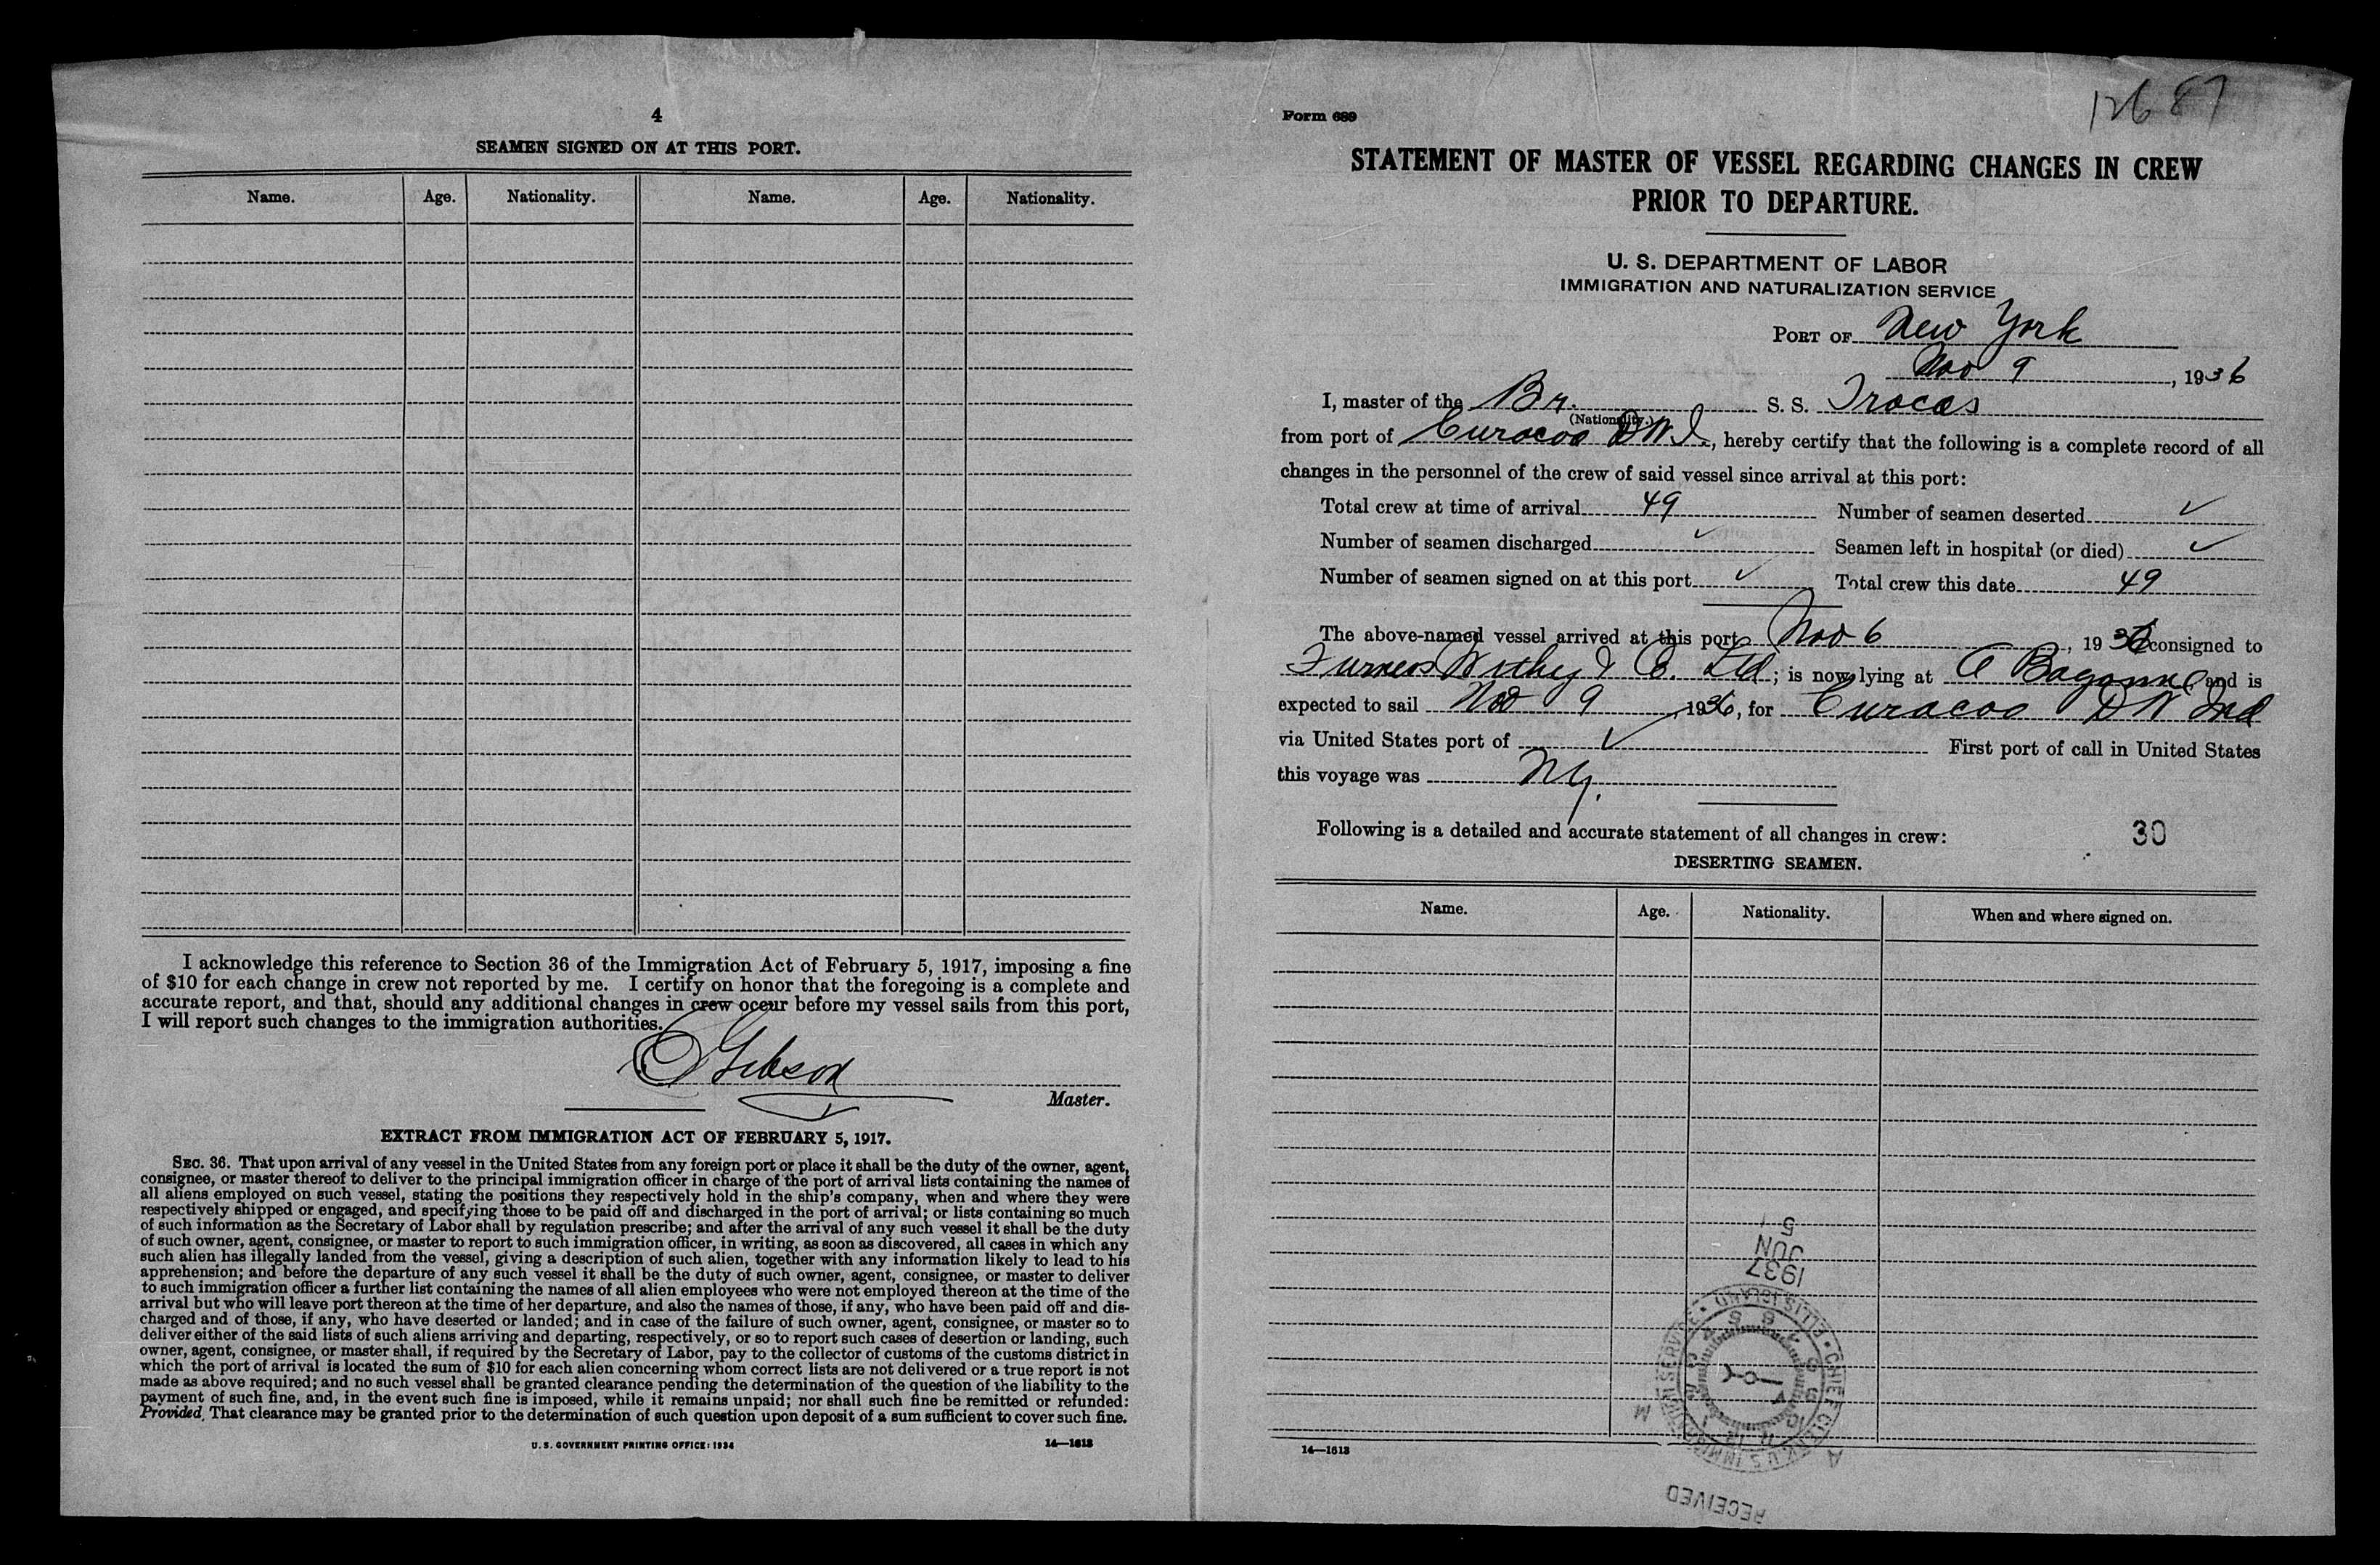 4
SEAMEN SIGNED ON AT THIS PORT.
Name. Age. Nationality. Name. Age. Nationality.
I acknowledge this reference to Section 36 of the Immigration Act of February 5, 1917, imposing a fine
of $10 for each change in crew not reported by me. I certify on honor that the foregoing is a complete and
accurate report, and that, should any additional changes in crew occur before my vessel sails from this port,
I will report such changes to the immigration authorities.
Gibson
Master.
EXTRACT FROM IMMIGRATION ACT OF FEBRUARY 5, 1917.
SEC. 36. That upon arrival of any vessel in the United States from any foreign port or place it shall be the duty of the owner, agent,
consignee, or master thereof to deliver to the principal immigration officer in charge of the port of arrival lists containing the names of
all aliens employed on such vessel, stating the positions they respectively hold in the ship's company, when and where they were
respectively shipped or engaged, and specifying those to be paid off and discharged in the port of arrival; or lists containing so much
of such information as the Secretary of Labor shall by regulation prescribe; and after the arrival of any such vessel it shall be the duty
of such owner, agent, consignee, or master to report to such immigration officer, in writing, as soon as discovered, all cases in which any
such alien has illegally landed from the vessel, giving a description of such alien, together with any information likely to lead to his
apprehension; and before the departure of any such vessel it shall be the duty of such owner, agent, consignee, or master to deliver
to such immigration officer a further list containing the names of all alien employees who were not employed thereon at the time of the
arrival but who will leave port thereon at the time of her departure, and also the names of those, if any, who have been paid off and dis-
charged and of those, if any, who have deserted or landed; and in case of the failure of such owner, agent, consignee, or master so to
deliver either of the said lists of such aliens arriving and departing, respectively, or so to report such cases of desertion or landing, such
owner, agent, consignee, or master shall, if required by the Secretary of Labor, pay to the collector of customs of the customs district in
which the port of arrival is located the sum of $10 for each alien concerning whom correct lists are not delivered or a true report is not
made as above required; and no such vessel shall be granted clearance pending the determination of the question of the liability to the
payment of such fine, and, in the event such fine is imposed, while it remains unpaid; nor shall such fine be remitted or refunded:
Provided, That clearance may be granted prior to the determination of such question upon deposit of a sum sufficient to cover such fine.
U. S. GOVERNMENT PRINTING OFFICE: 1934 14—1613
12687
Form 689
STATEMENT OF MASTER OF VESSEL REGARDING CHANGES IN CREW
PRIOR TO DEPARTURE.
U. S. DEPARTMENT OF LABOR
IMMIGRATION AND NATURALIZATION SERVICE
PORT OF New York
Nov 9, 1936
I, master of the Br. S. S. Trocas
(Nationality.)
from port of Curacoa DWI, hereby certify that the following is a complete record of all
changes in the personnel of the crew of said vessel since arrival at this port:
Total crew at time of arrival 49 Number of seamen deserted ✓
Number of seamen discharged ✓ Seamen left in hospital (or died) ✓
Number of seamen signed on at this port ✓ Total crew this date 49
The above-named vessel arrived at this port Nov 6, 1936 consigned to
Furness Withy & Co. Ltd; is now lying at Bayonne and is
expected to sail Nov 9, 1936, for Curacoa DW Ind
via United States port of ✓ First port of call in United States
this voyage was NY.
Following is a detailed and accurate statement of all changes in crew: 30
DESERTING SEAMEN.
Name. Age. Nationality. When and where signed on.
1937
JUN
5
ELLIS ISLAND
RECEIVED
14—1613